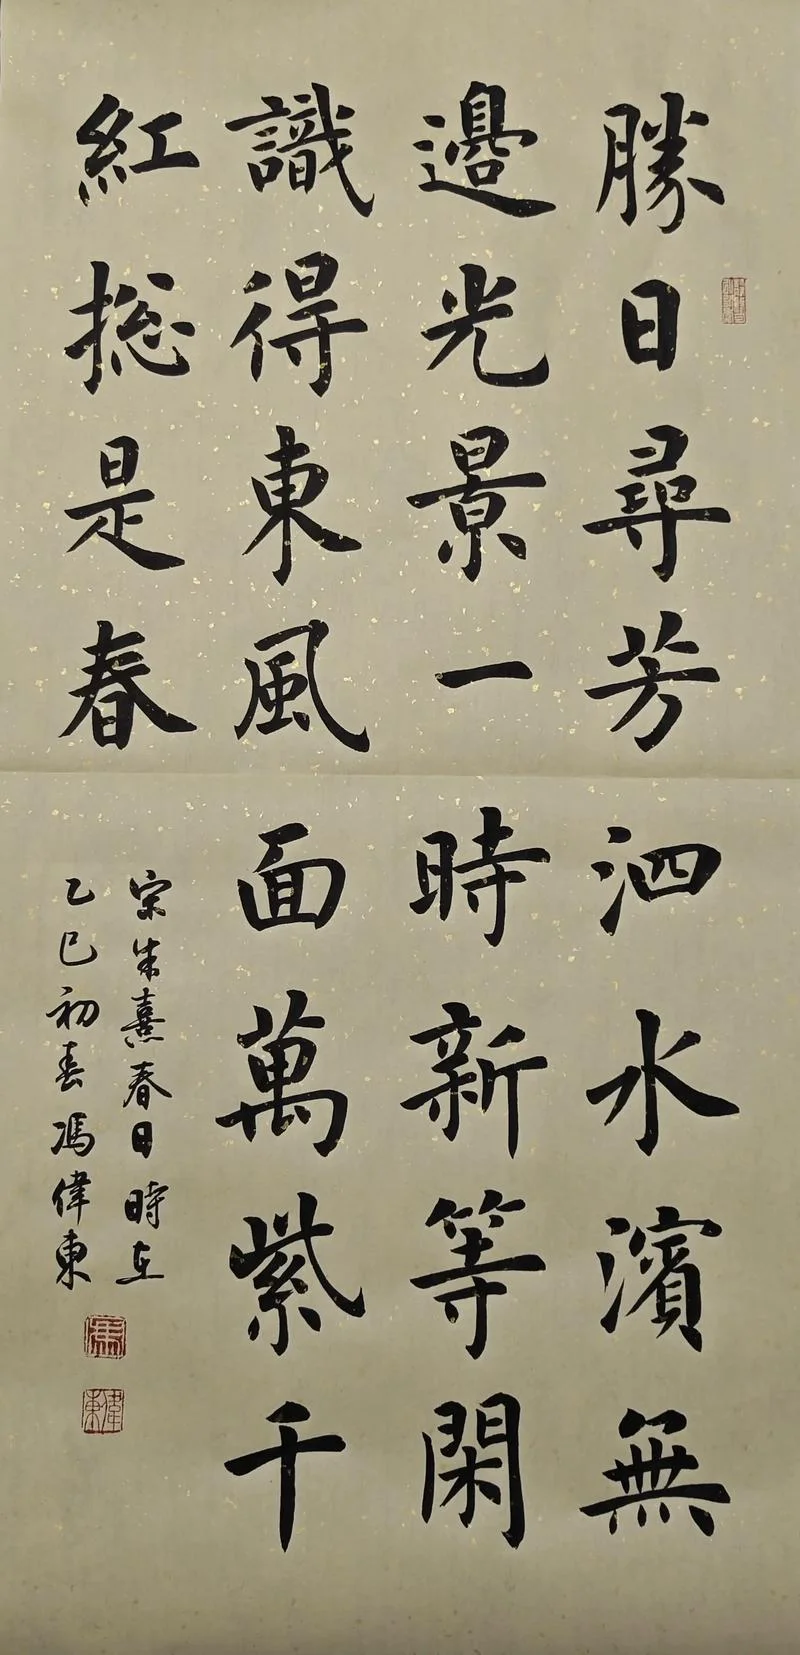 勝日尋芳泗水濱無
邊光景一時新等閑
識得東風面萬紫千
紅揔是春
宋朱熹春日時在
乙巳初春馮偉東
馮
偉東